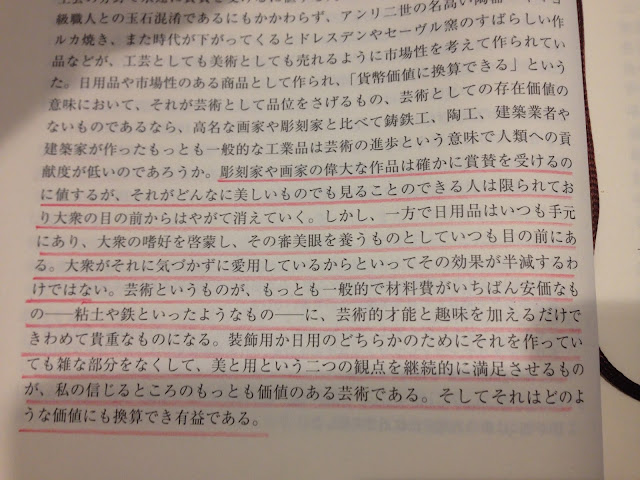 級職人との玉石混淆であるにもかかわらず、アンリ二世の名高い陶器
ルカ焼き、また時代が下がってくるとドレスデンやセーヴル窯のすばらしい作
品などが、工芸としても美術としても売れるように市場性を考えて作られてい
た。日用品や市場性のある商品として作られ、「貨幣価値に換算できる」という
意味において、それが芸術として品位をさげるもの、芸術としての存在価値の
ないものであるなら、高名な画家や彫刻家と比べて鋳鉄工、陶工、建築業者や
建築家が作ったもっとも一般的な工業品は芸術の進歩という意味で人類への貢
献度が低いのであろうか。彫刻家や画家の偉大な作品は確かに賞賛を受けるの
に値するが、それがどんなに美しいものでも見ることのできる人は限られてお
り大衆の目の前からはやがて消えていく。しかし、一方で日用品はいつも手元
にあり、大衆の嗜好を啓蒙し、その審美眼を養うものとしていつも目の前にあ
る。大衆がそれに気づかずに愛用しているからといってその効果が半減するわ
けではない。芸術というものが、もっとも一般的で材料費がいちばん安価なも
の――粘土や鉄といったようなもの――に、芸術的才能と趣味を加えるだけで
きわめて貴重なものになる。装飾用か日用のどちらかのためにそれを作ってい
ても雑な部分をなくして、美と用という二つの観点を継続的に満足させるもの
が、私の信じるところのもっとも価値のある芸術である。そしてそれはどのよ
うな価値にも換算でき有益である。